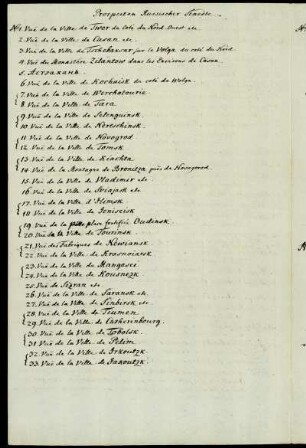 Prospecten Russischer Städte
No 1. Vuë de la Ville de Twer du Coté du Nord-Ouest etc.
2. Vuë de la Ville de Casan etc.
3. Vuë de la Ville de Tschebaxar sur le Wolga du coté du Nord.
4. Vuë du Monastére Zilantow dans les Environs de Casan.
5. Astrakann.
6. Vuë de la Ville de du coté du Wolga.
7. Vuë de la Ville de Werchotourie
8. Vuë de la Ville de Tara
9. Vuë de la Ville de Selenginsk.
10. Vuë de la Ville de Nertschinsk.
11. Vuë de la Ville de Novogrod
12. Vuë de la Ville de Tomsk
13. Vuë de la Ville de Kiachta
14. Vuë de la Montagne de Bronitza près de Novogorod.
15. Vuë de la Ville de Vladimer etc
16. Vuë de la Ville de Sviajesk etc
17. Vuë de la Ville d'Ilimsk
18. Vuë de la Ville de Jeniseisk
19. Vuë de la place fortifiée Oudinsk.
20. Vuë de la Ville de Tourinsk
21. Vuë des Fabriques de Newiansk
22. Vuë de la Ville de Krasnoiarsk
23. Vuë de la Ville de Mangasei
24. Vuë de la Ville de Kousnezk
25. Vuë de Sizran etc
26. Vuë de la Ville de Saransk etc
27. Vuë de la Ville de Sinbirsk etc
28. Vuë de la Ville de Tiumen
29. Vuë de la Ville de Catherinbourg.
30. Vuë de la Ville de Tobolsk
31. Vuë de la Ville de Pelim
32. Vuë de la Ville de Irkoutzk
33. Vuë de la Ville de Jakoutzk